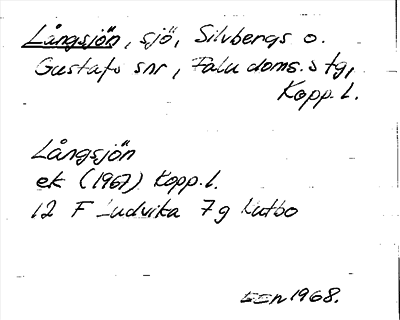 Långsjön, sjö, Silvbergs o.
Gustafs snr, Falu doms.s tg,
Kopp. l.
Långsjön
ek (1967) Kopp. l.
12 F Ludvika 7 g Kutbo
1968.